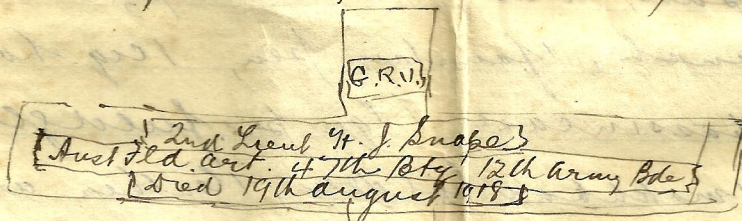 G.R.U.
2nd Lieut H. J. Snape
Aust Fld. Art. 47th Bty 12th Army Bde
Died 19th August 1918